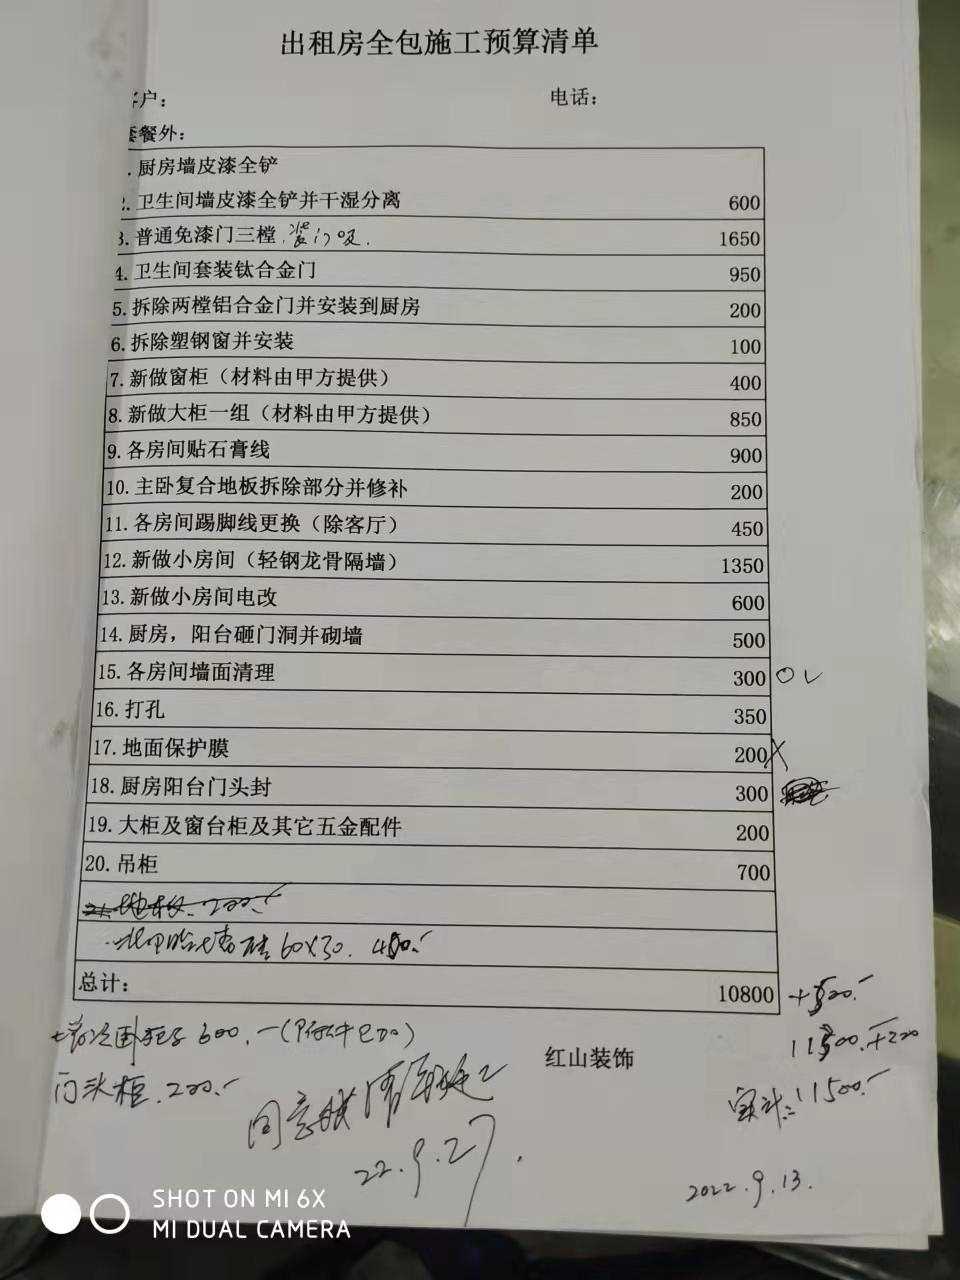 出租房全包施工预算清单
客户： 电话：
套餐外：
1. 厨房墙皮漆全铲
2. 卫生间墙皮漆全铲并干湿分离 600
3. 普通免漆门三樘 装门吸. 1650
4. 卫生间套装钛合金门 950
5. 拆除两樘铝合金门并安装到厨房 200
6. 拆除塑钢窗并安装 100
7. 新做窗柜（材料由甲方提供） 400
8. 新做大柜一组（材料由甲方提供） 850
9. 各房间贴石膏线 900
10. 主卧复合地板拆除部分并修补 200
11. 各房间踢脚线更换（除客厅） 450
12. 新做小房间（轻钢龙骨隔墙） 1350
13. 新做小房间电改 600
14. 厨房，阳台砸门洞并砌墙 500
15. 各房间墙面清理 300
16. 打孔 350
17. 地面保护膜 200
18. 厨房阳台门头封 300
19. 大柜及窗台柜及其它五金配件 200
20. 吊柜 700
60X30.
总计： 10800
11500.+200
红山装饰
门头柜.200.-
实计:11500.-
同意
22.9.27.
2022.9.13.
SHOT ON MI 6X
MI DUAL CAMERA